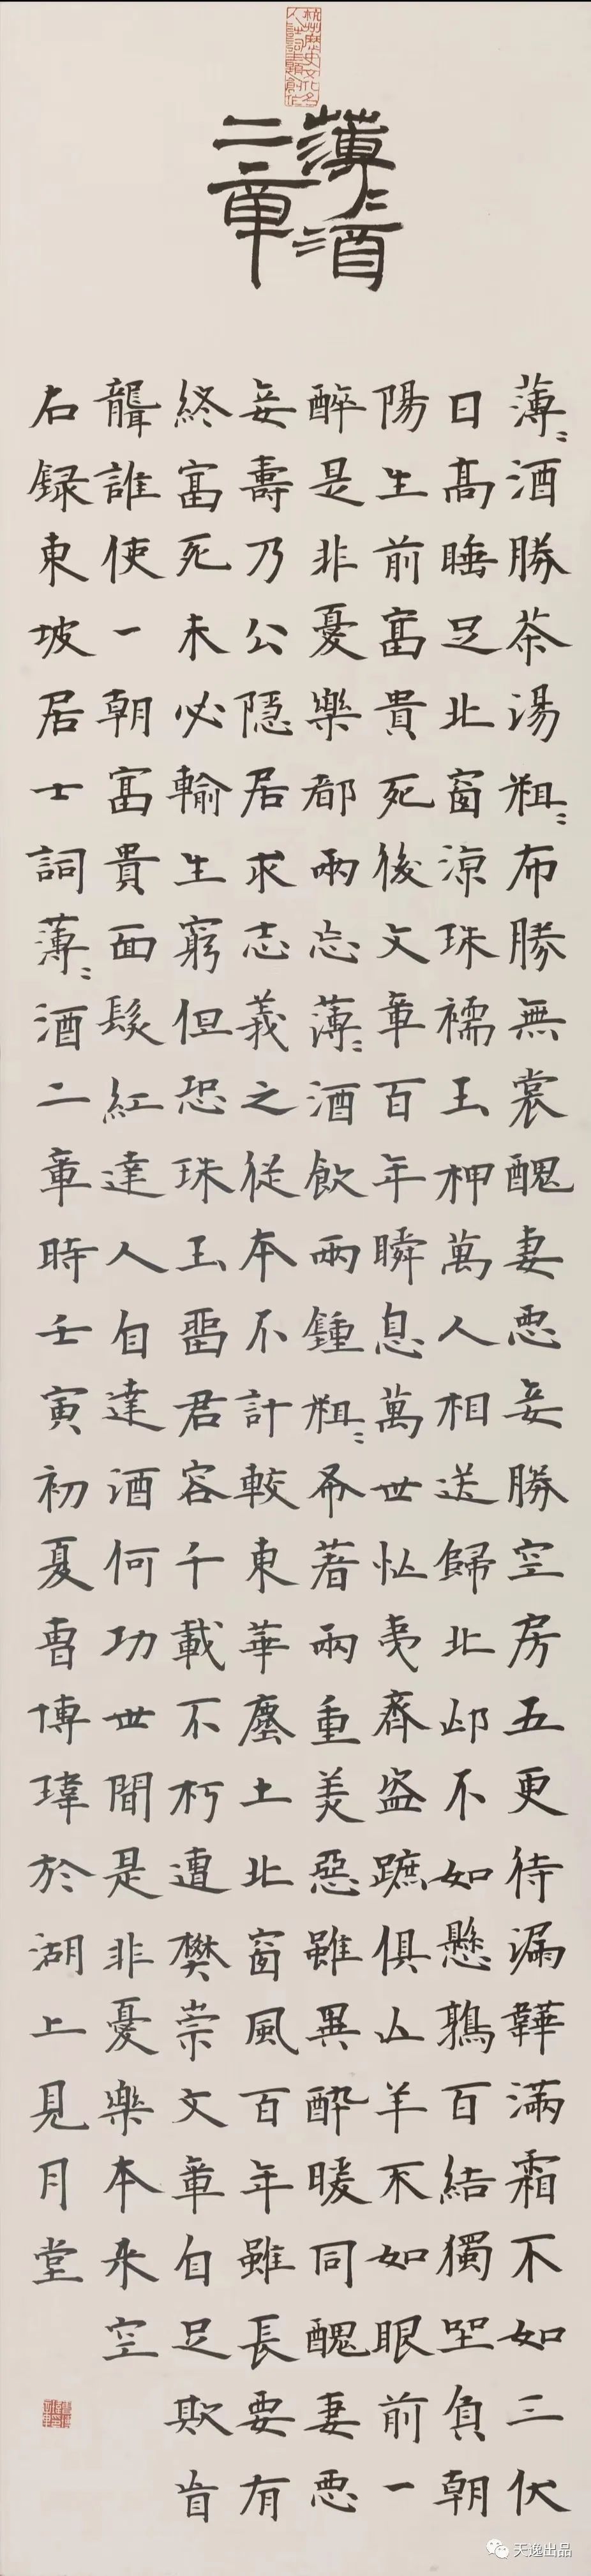 杭州歷史文化名
人詩詞主題創作
薄〻酒
二章
薄〻酒勝茶湯粗〻布勝無裳醜妻惡妾勝空房五更待漏鞾滿霜不如三伏
日高睡足北窗涼珠襦玉柙萬人相送歸北邙不如懸鶉百結獨坐負朝
陽生前富貴死後文章百年瞬息萬世忙夷齊盜蹠俱亡羊不如眼前一
醉是非憂樂都兩忘薄〻酒飲兩鍾粗〻布著兩重美惡雖異醉暖同醜妻惡
妾壽乃公隱居求志義之從本不計較東華塵土北窗風百年雖長要有
終富死未必輸生窮但恐珠玉留君容千載不朽遭樊崇文章自足欺盲
聾誰使一朝富貴面髮紅達人自達酒何功世間是非憂樂本來空
右録東坡居士詞薄〻酒二章時壬寅初夏曹博瑋於湖上見月堂
天逸出品